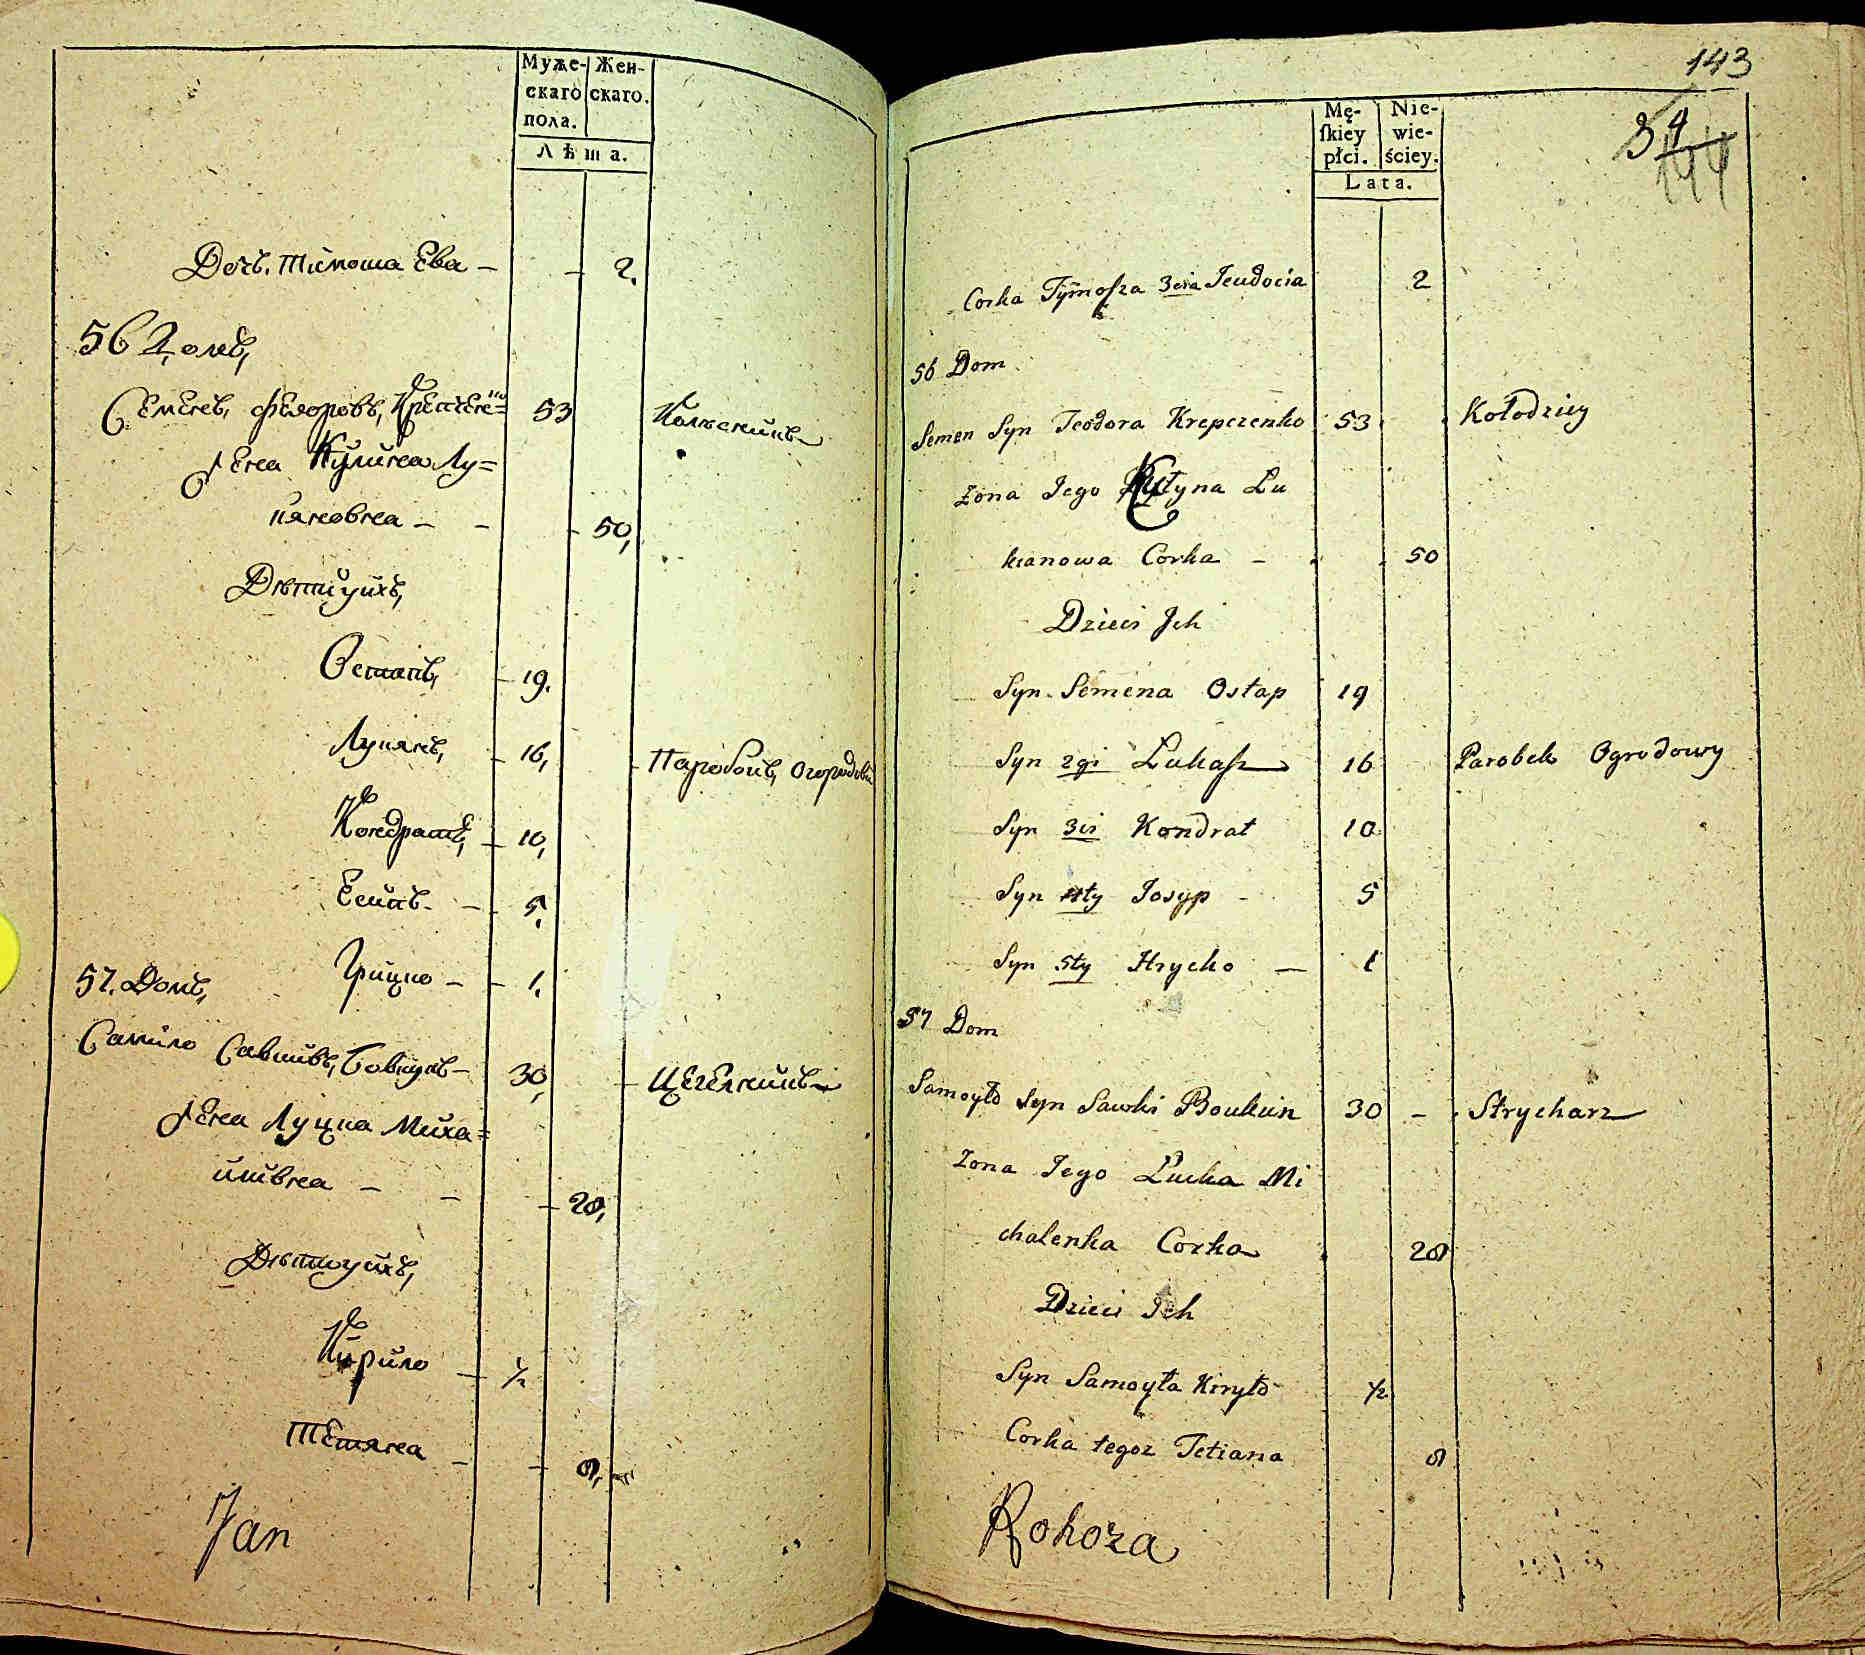 Муже- Жен-
скаго скаго.
пола.
Лѣта.
Дочь Тимоша Ева - - 2.
56 Домъ,
Семенъ, Федоровъ, Крепчен= 53
Жена Кулина Лу=
кяновна - - - 50,
Дѣти ихъ,
Остапъ, - 19.
Лукянъ, - 16, Паробокъ, Огородовы
Кондратъ, - 10,
Есипъ - - 5.
Грицко - - 1.
57. Домъ,
Самило Савкивъ, Бовкунъ - 30, - Цегелникъ
Жена Луцка Миха=
иливна - - - 28,
Дѣти ихъ,
Кирило - ½
Тетяна - - 8,
Jan
143
34
144
Mę- Nie-
ſkiey wie-
płci. ściey.
Lata.
Corka Tymoſza 3cia Jeudocia 2
56 Dom
Semen Syn Teodora Krepczenko 53 Kołodziey
Zona Jego Kulyna Lu
kianowa Corka - 50
Dzieci Jch
Syn Semena Ostap 19
Syn 2gi Lukaſz 16 Parobek Ogrodowy
Syn 3ci Kondrat 10
Syn 4ty Josyp - 5
Syn 5ty Hrycko - 1
57 Dom
Samoyło Syn Sawki Boukun 30 - Strycharz
Zona Jego Łucka Mi
chalenka Corka 28
Dzieci Jch
Syn Samoyła Kiryło ½
Corka tegoz Tetiana 8
Rohoza